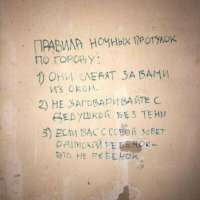 ПРАВИЛА НОЧНЫХ ПРОГУЛОК
ПО ГОРОДУ:
1) ОНИ СЛЕДЯТ ЗА ВАМИ
ИЗ ОКОН.
2) НЕ ЗАГОВАРИВАЙТЕ С
ДЕДУШКОЙ БЕЗ ТЕНИ
3) ЕСЛИ ВАС С СОБОЙ ЗОВЕТ
РЕБЕНОК -
ЭТО НЕ РЕБЕНОК.